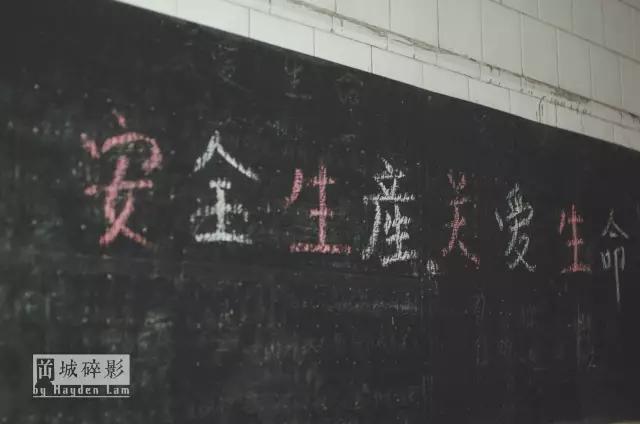 安全生産关爱生命
城碎影
by Hayden Lam